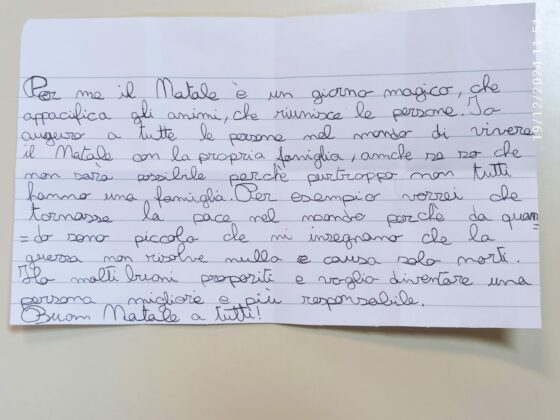 Per me il Natale è un giorno magico, che
appacifica gli animi, che riunisce le persone. Io
auguro a tutte le persone nel mondo di vivere
il Natale con la propria famiglia, anche se so che
non sarà possibile perchè purtroppo non tutti
hanno una famiglia. Per esempio vorrei che
tornasse la pace nel mondo perchè da quan=
=do sono piccola che mi insegnano che la
guerra non risolve nulla e causa solo morti.
Ho molti buoni propositi e voglio diventare una
persona migliore e più responsabile.
Buon Natale a tutti!
19/12/2024 11:51